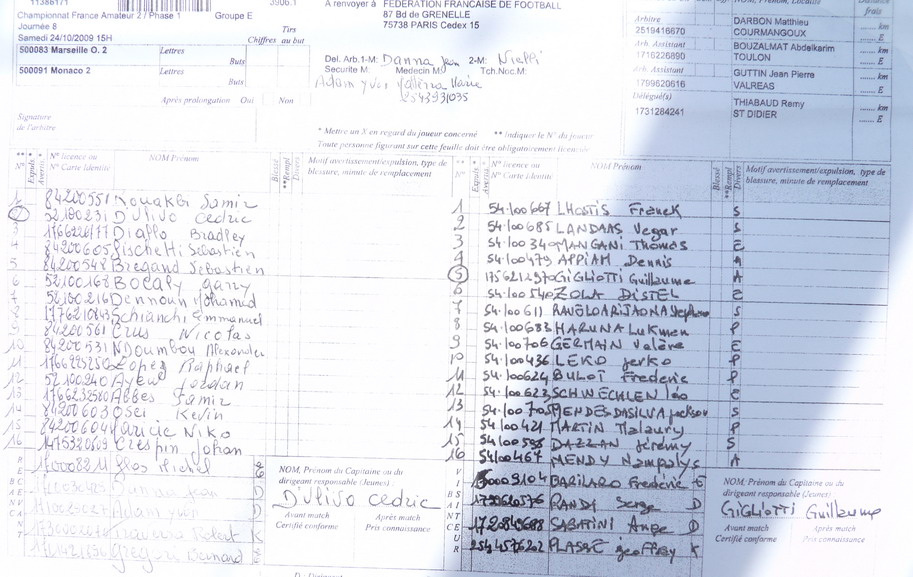 11386171
Championnat France Amateur 2 / Phase 1 Groupe E
Journée 8
Samedi 24/10/2009 15H
3906.1
A renvoyer à FEDERATION FRANCAISE DE FOOTBALL
87 Bd de GRENELLE
75738 PARIS Cedex 15
Tirs
Chiffres au but
500083 Marseille O. 2 Lettres
Buts
500091 Monaco 2 Lettres
Buts
Après prolongation Oui Non
Signature
de l'arbitre
Del. Arb.1-M: Danna Jean 2-M:
Securite M: Medecin M: Tch.Noc.M:
Adam Yvan
2543931035
* Mettre un X en regard du joueur concerné ** Indiquer le N° du joueur
Toute personne figurant sur cette feuille doit être obligatoirement licenciée
frais
Arbitre DARBON Matthieu km
2519416670 COURMANGOUX E
Arb. Assistant BOUZALMAT Abdelkarim km
1716226890 TOULON E
Arb. Assistant GUTTIN Jean Pierre km
1799620616 VALREAS E
Délégué(s) THIABAUD Remy km
1731284241 ST DIDIER E
** N° * Expuls. Averts. N° licence ou N° Carte Identité NOM Prénom Blessé **Rempl Divers Motif avertissement/expulsion, type de blessure, minute de remplacement
** N° * Expuls Averts. N° licence ou N° Carte Identité NOM Prénom Blessé **Rempl Divers Motif avertissement/expulsion, type de blessure, minute de remplacement
1 Samir
2 52100231 D'Ulivo Cedric
3 Diallo Bradley
4 84200605 Fischetti Sébastien
5 84200548 Bregand Sebastien
6 52100168 Bocaly Garry
7 52100216 Dennoun Mohamed
8 Schianchi Emmanuel
9 84200561 Crus Nicolas
10 84200531 NDoumbou Alexander
11 Lopez Raphael
12 52100240 Ayew Jordan
13 1766232580 Abbes Samir
14 84200603 Osei Kevin
15 84200604 Niko
16 1475320609 Crespin Johan
1 54.100667 LHOSTIS Franck S
2 54.100685 LANDAAS Vegar S
3 MANGANI Thomas E
4 54.100479 APPIAH Dennis A
5 GIGLIOTTI Guillaume A
6 54.100540 ZOLA DISTEL E
7 54.100611 S
8 54.100683 HARUNA Lukmen P
9 54.100706 GERMAIN Valère E
10 54.100436 LEKO Jerko P
11 54.100624 BULOT Frederic P
12 54.100623 SCHWECHLEN Léo E
13 MENDES DA SILVA Jackson S
14 54.100421 MARTIN Malaury P
15 DAZZAN Jérémy S
16 54100467 MENDY Nampalys A
Danna Jean D
Adam Yvan D
Robert K
Bernard
NOM, Prénom du Capitaine ou du
dirigeant responsable (Jeunes) :
D'Ulivo Cedric
Avant match Après match
Certifié conforme Pris connaissance
BARILARO Frederic E
RANDI Serge D
SABATINI Ange D
2544576202 PLASSE Geoffrey K
NOM, Prénom du Capitaine ou du
dirigeant responsable (Jeunes) :
GIGLIOTTI Guillaume
Avant match Après match
Certifié conforme Pris connaissance